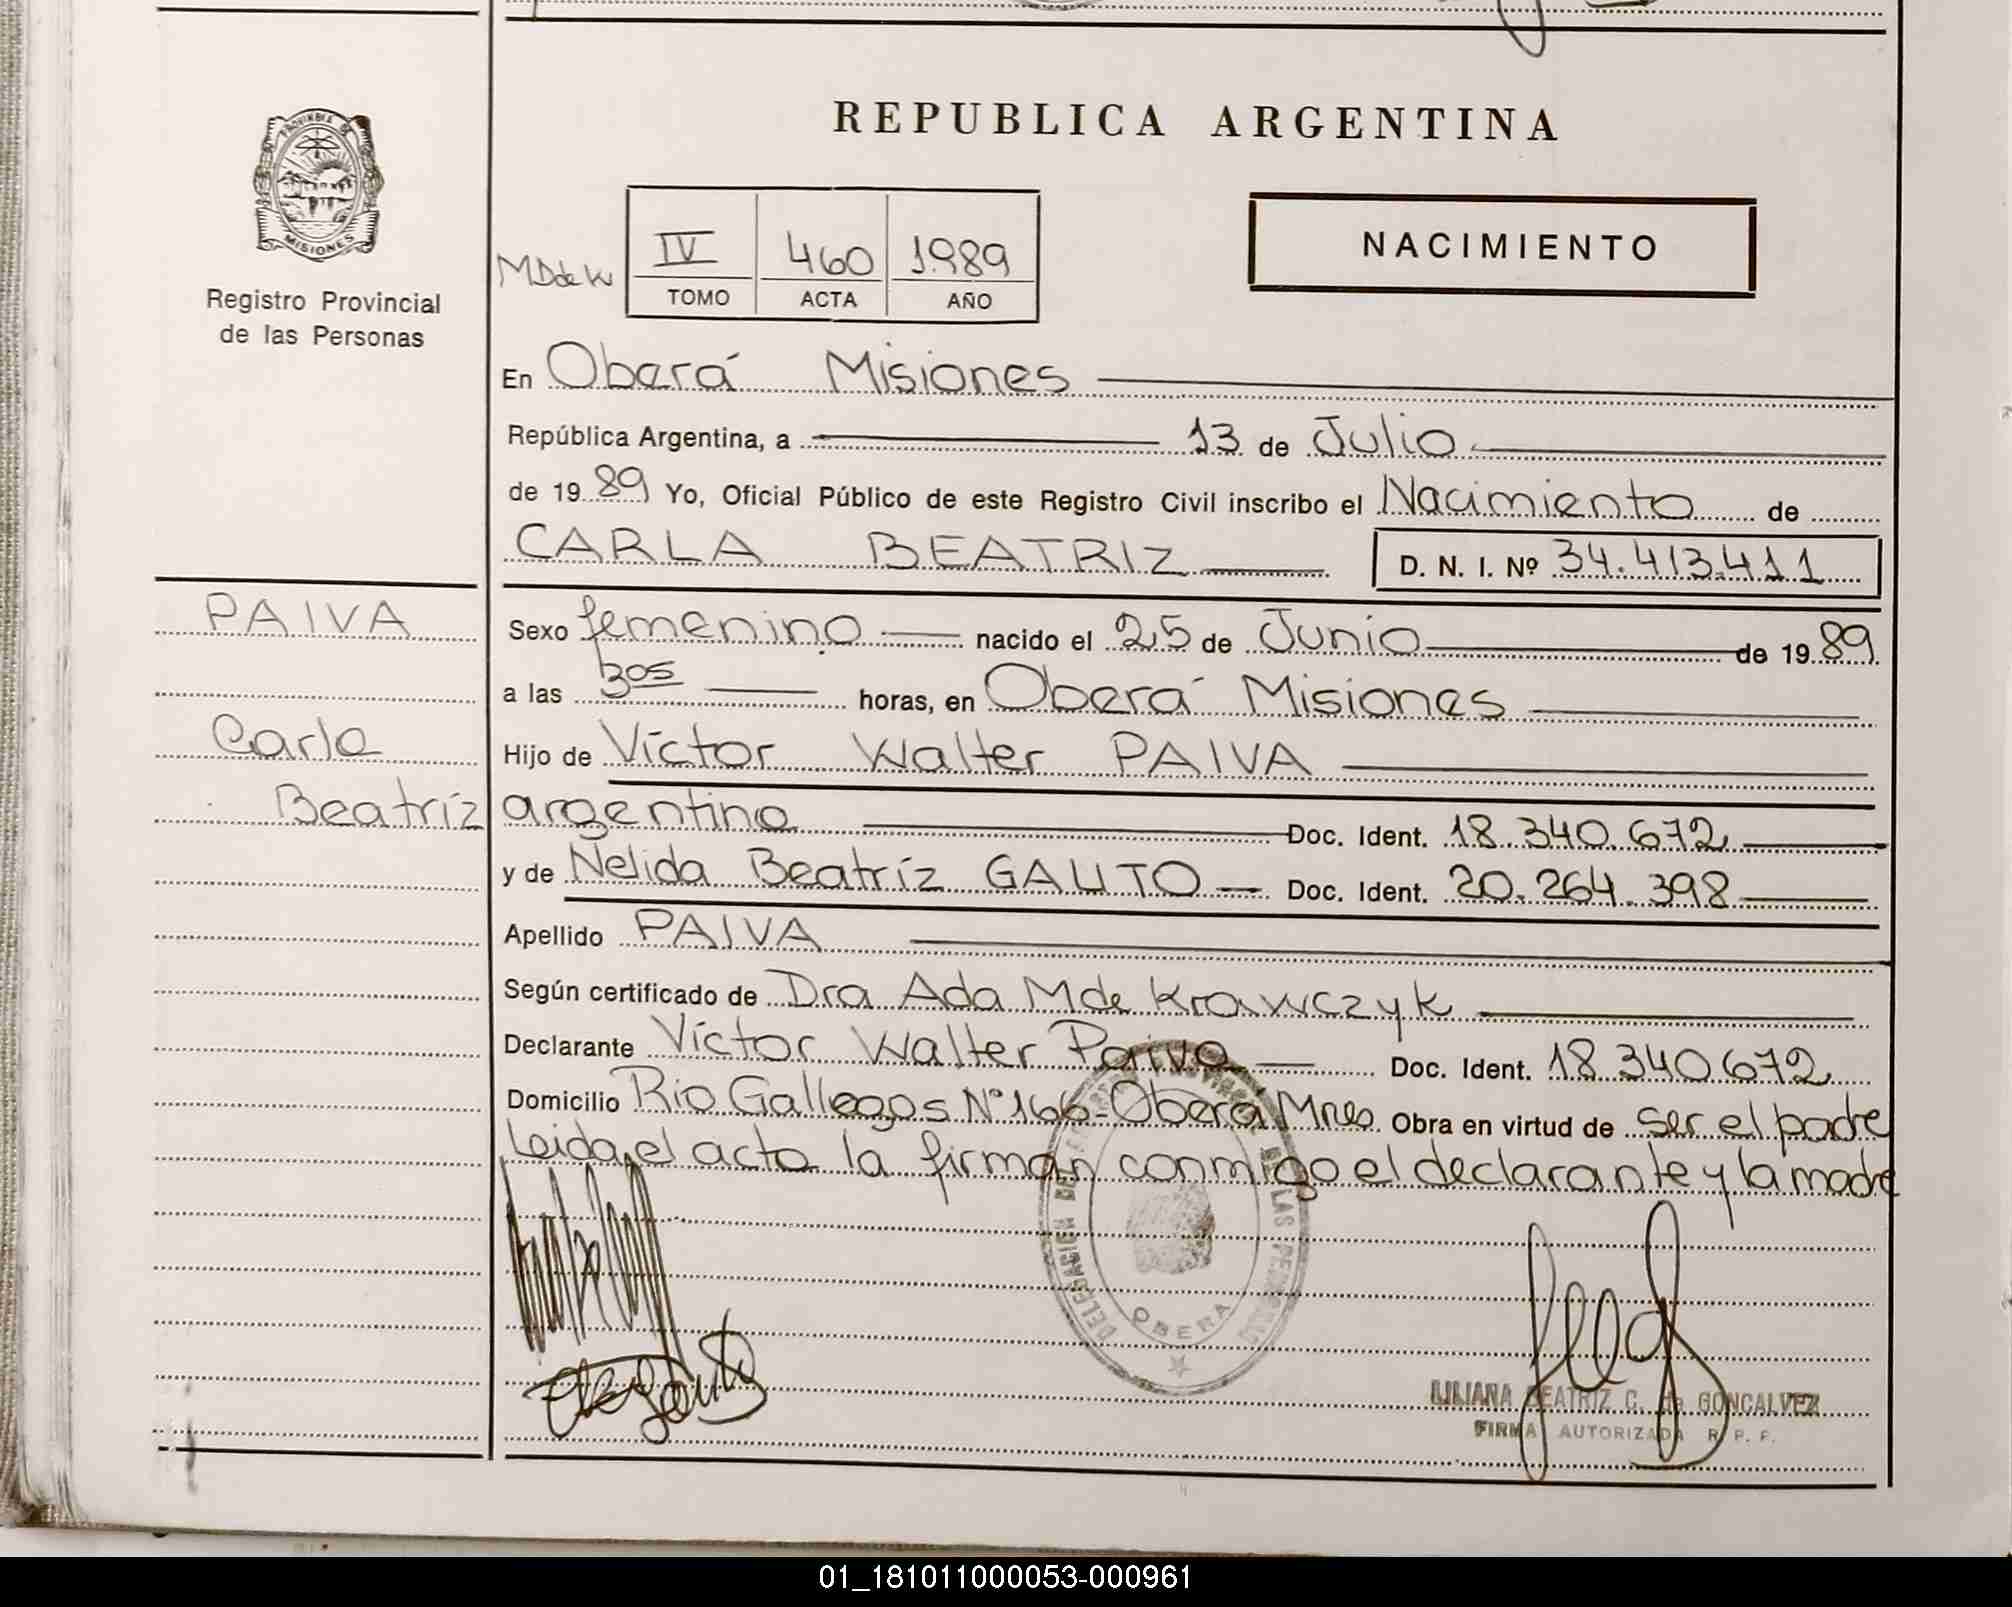 REPUBLICA ARGENTINA
PROVINCIA DE
MISIONES
Registro Provincial
de las Personas
MDdeK
IV 460 1989
TOMO ACTA AÑO
NACIMIENTO
En Oberá Misiones
República Argentina, a 13 de Julio
de 1989 Yo, Oficial Público de este Registro Civil inscribo el Nacimiento de
CARLA BEATRIZ D. N. I. Nº 34.413.411
PAIVA
Carla
Beatríz
Sexo femenino nacido el 25 de Junio de 1989
a las 305 horas, en Oberá Misiones
Hijo de Víctor Walter PAIVA
argentino Doc. Ident. 18.340.672
y de Nelida Beatríz GAUTO Doc. Ident. 20.264.398
Apellido PAIVA
Según certificado de Dra Ada M de Krawczyk
Declarante Víctor Walter Paiva Doc. Ident. 18340672
Domicilio Rio Gallegos Nº 166-Oberá Mnes Obra en virtud de ser el padre
Leida el acta la firman conmigo el declarante y la madre
DELEGACION DE LAS PERSONAS
OBERA
LILIANA BEATRIZ C. de GONCALVEZ
FIRMA AUTORIZADA R. P. P.
01_181011000053-000961